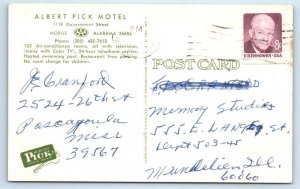 ALBERT PICK MOTEL
1119 Government Street
MOBILE ALABAMA 36604
Phone: (205) 432-7613
123 Air-conditioned rooms, all with television,
(many with Color TV), 24-hour telephone service.
Swimming pool, Restaurant and
J Cranford
2524-26th St
Pascagoula
Miss
39567
Pick
POST CARD
EISENHOWER·USA
Memory Studies
555 E. Lange St.
Dept 503-45
Mundelien Ill.
60060